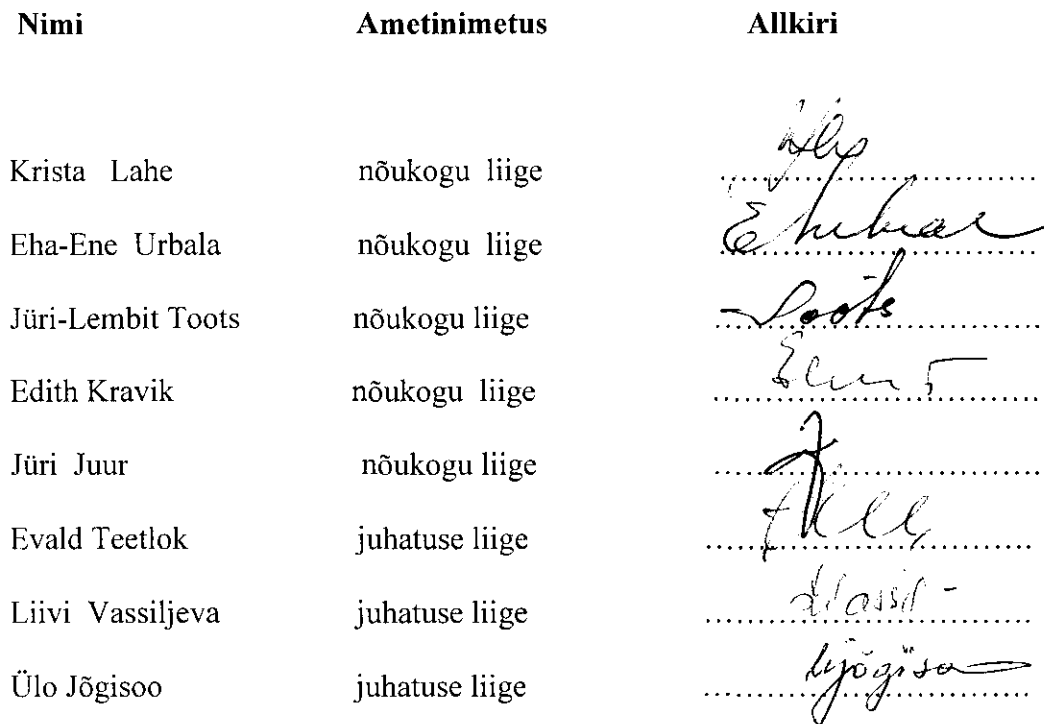 Nimi Ametinimetus Allkiri
Krista Lahe nõukogu liige
Eha-Ene Urbala nõukogu liige
Jüri-Lembit Toots nõukogu liige Toots
Edith Kravik nõukogu liige
Jüri Juur nõukogu liige
Evald Teetlok juhatuse liige
Liivi Vassiljeva juhatuse liige
Ülo Jõgisoo juhatuse liige